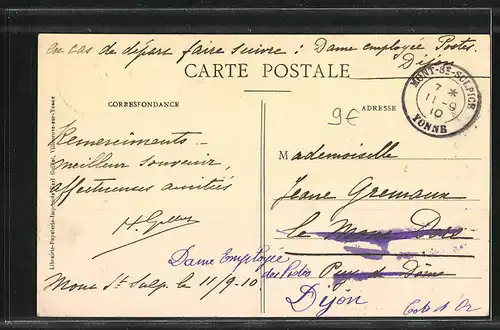 en cas de départ faire suivre : Dame employée Postes
Dijon
CARTE POSTALE
MONT-ST-SULPICE
7 *
11 - 9
10
YONNE
CORRESPONDANCE
ADRESSE
9€
Remerciments _
meilleur souvenir,
affectueuses amitiés
Mademoiselle
Jeane Gremaux
Le Mont Dore
Dame Employée
des Postes
Puy de Dôme
Mont St Sulp. le 11/9-10
Dijon
Cote d'Or
Librairie-Papeterie-Imprimerie